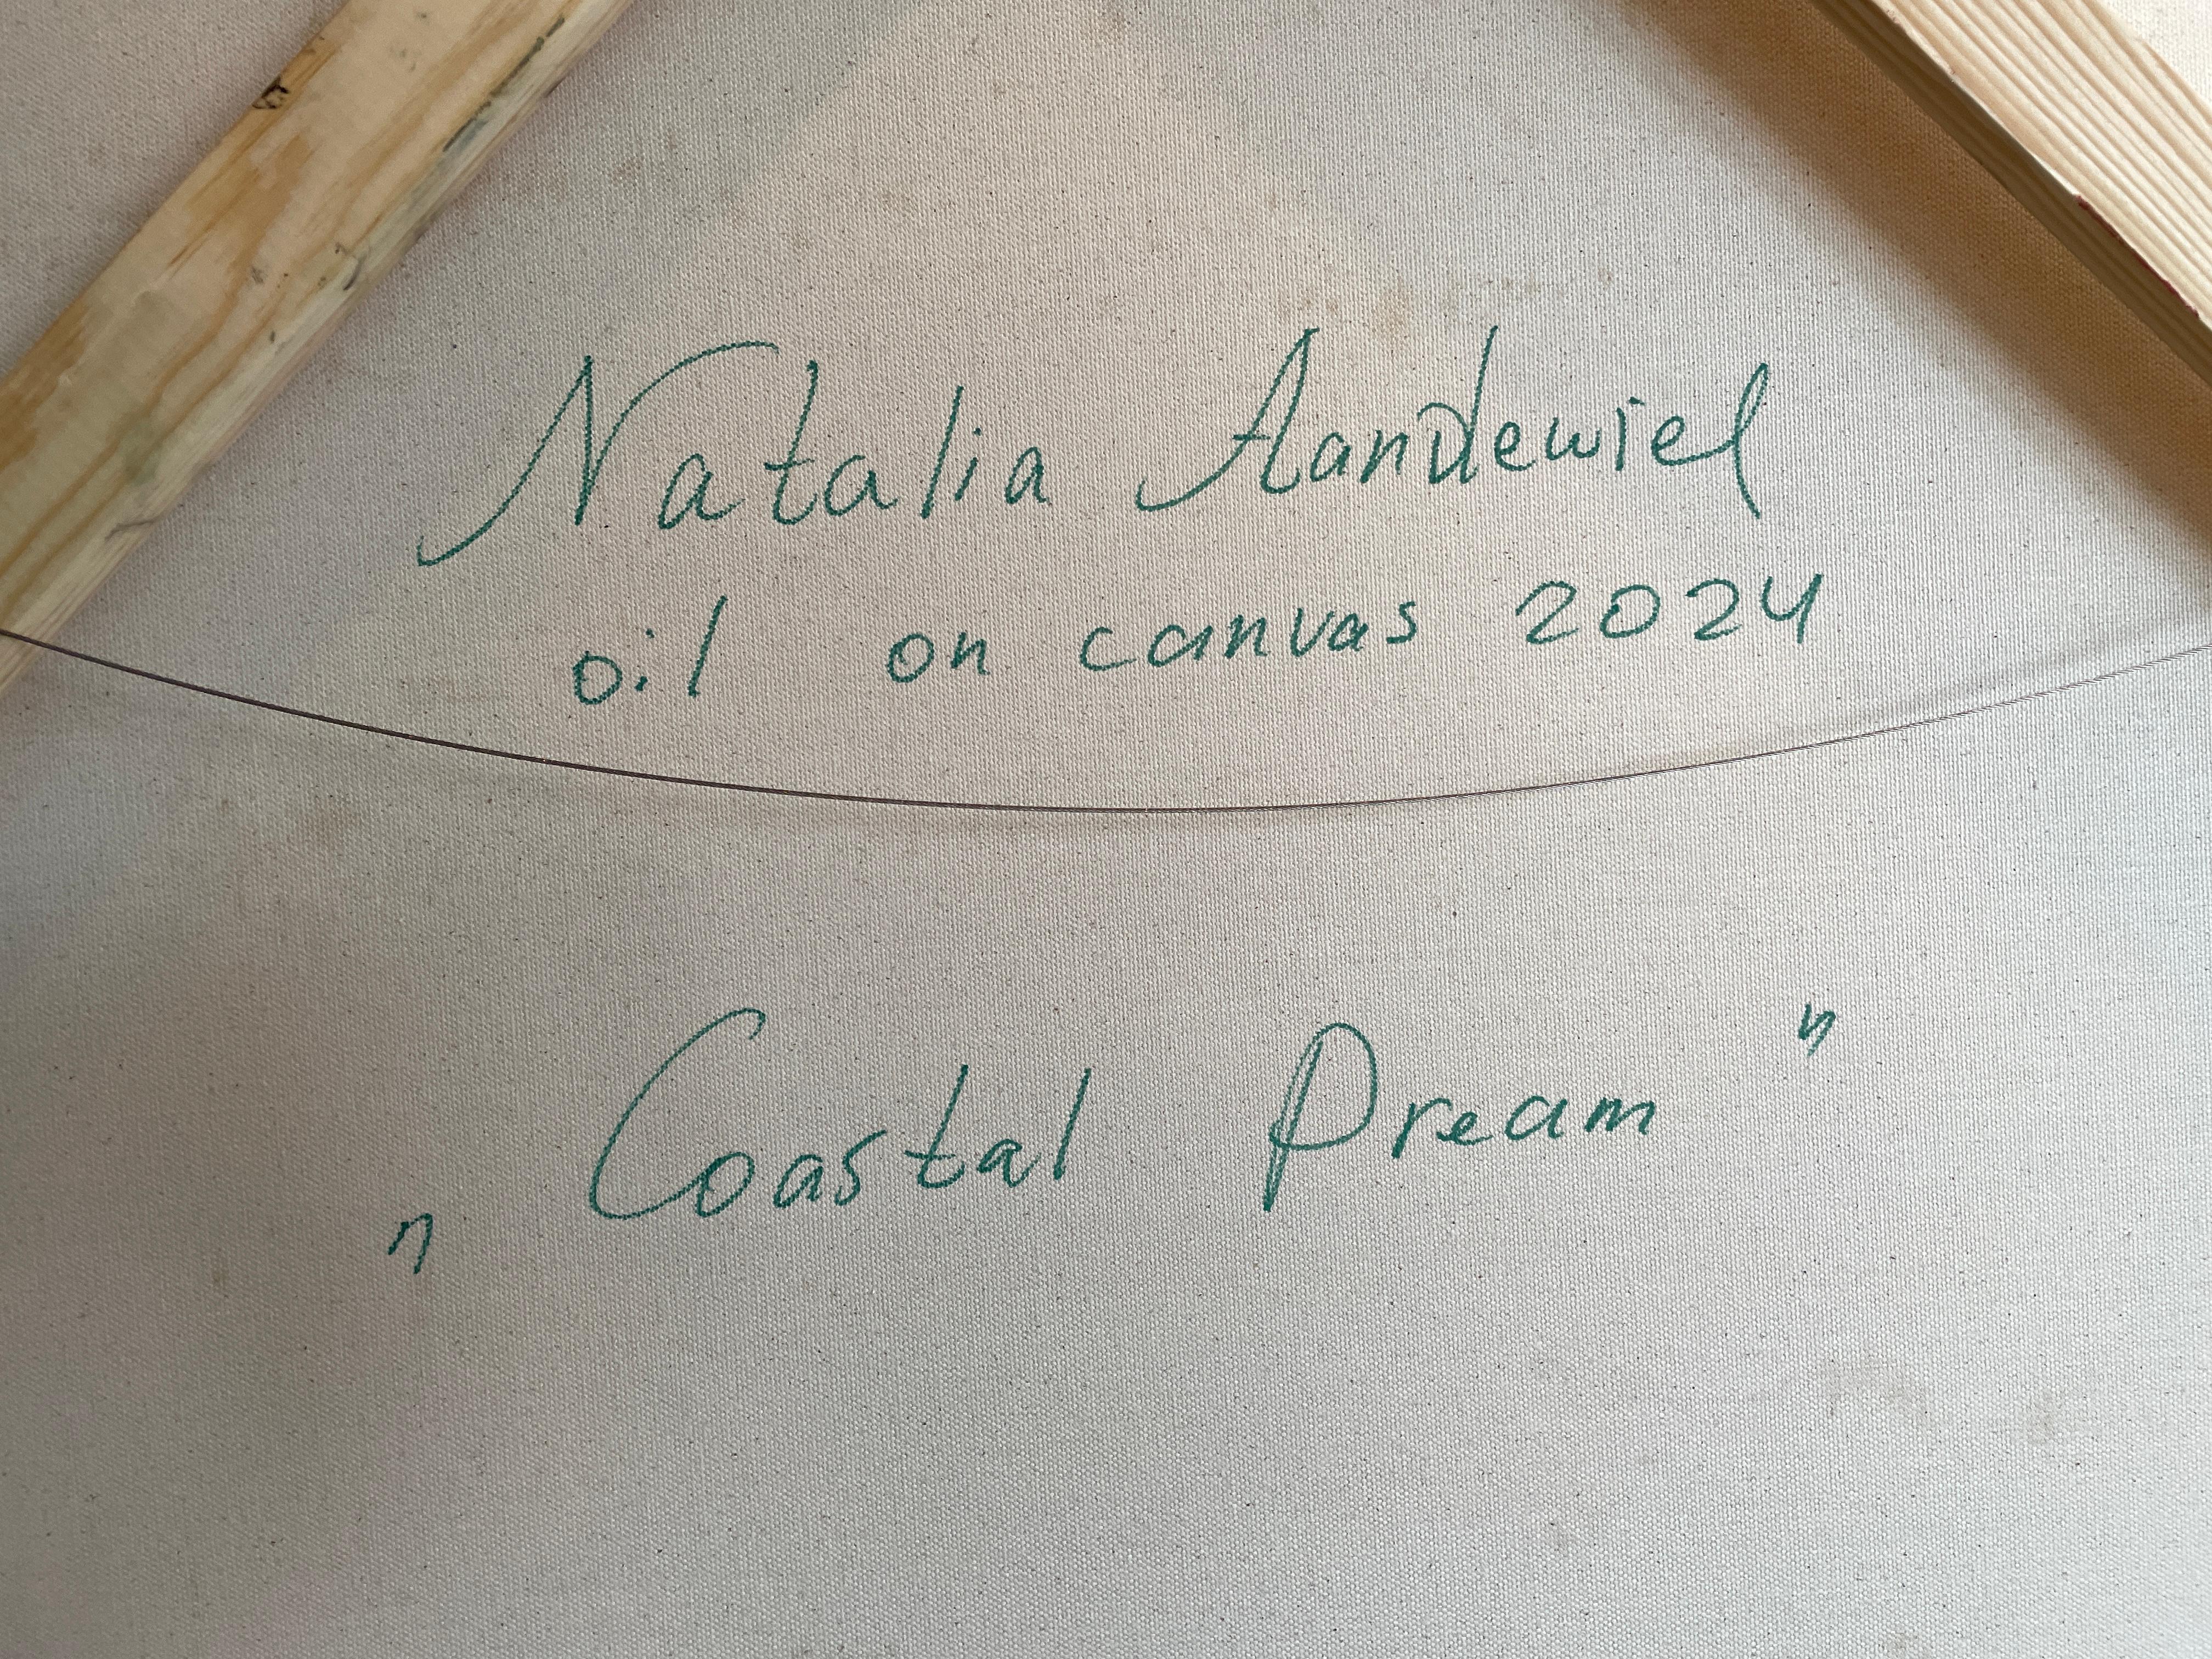 Natalia Aandewiel
oil on canvas 2024
„ Coastal Dream "